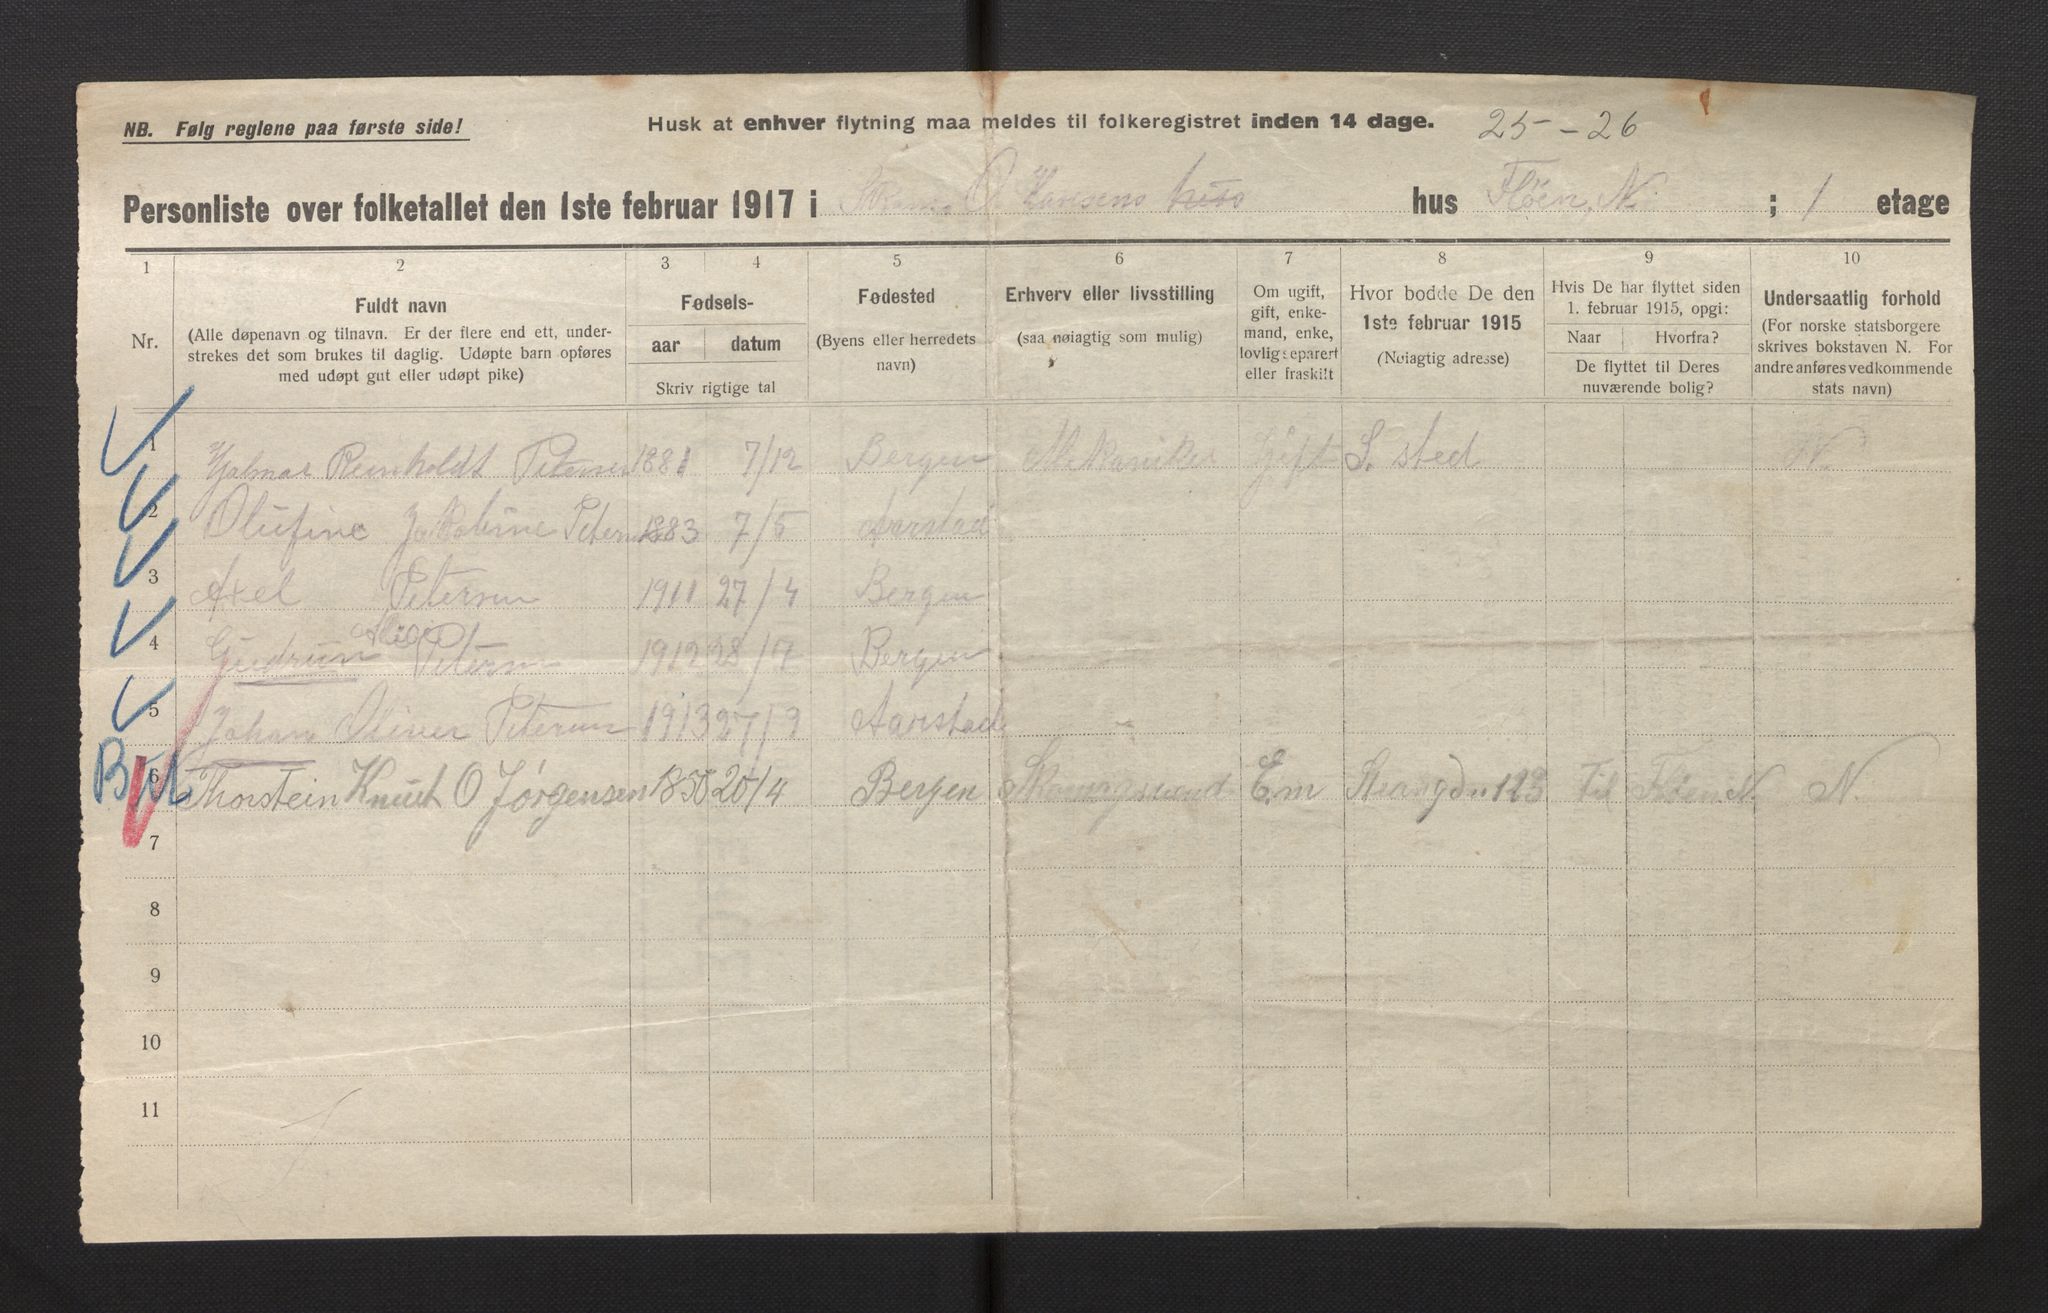 NB. Følg reglene paa første side!
Husk at enhver flytning maa meldes til folkeregistret inden 14 dage. 25 - 26
Personliste over folketallet den 1ste februar 1917 i O Hansens hus hus Fløen, N. ; 1 etage
1 2 3 4 5 6 7 8 9 10
Nr.
Fuldt navn
(Alle døpenavn og tilnavn. Er der flere end ett, under-
strekes det som brukes til daglig. Udøpte barn opføres
med udøpt gut eller udøpt pike)
Fødsels-
aar datum
Skriv rigtige tal
Fødested
(Byens eller herredets
navn)
Erhverv eller livsstilling
(saa nøiagtig som mulig)
Om ugift,
gift, enke-
mand, enke,
lovlig separert
eller fraskilt
Hvor bodde De den
1ste februar 1915
(Nøiagtig adresse)
Hvis De har flyttet siden
1. februar 1915, opgi:
Naar Hvorfra?
De flyttet til Deres
nuværende bolig?
Undersaatlig forhold
(For norske statsborgere
skrives bokstaven N. For
andre anføres vedkommende
stats navn)
1 Hjalmar Reinholdt Petersen 1881 7/12 Bergen Mekaniker Gift S. sted N.
2 Olufine Jakobine Petersen 1883 7/5 Aarstad
3 Axel Petersen 1911 27/4 Bergen
4 Gudrun Petersen 1912 28/7 Bergen
5 Johan Oliver Petersen 1913 27/9 Aarstad
6 Thorstein Knut O Jørgensen 20/4 Bergen E.m 123 Til Fløen N. N.
7
8
9
10
11